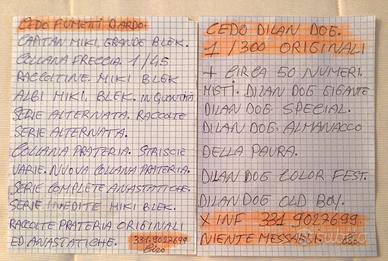 CEDO FUMETTI DARDO:
CAPITAN MIKI, GRANDE BLEK.
COLLANA FRECCIA. 1/45
RACCOLTINE. MIKI BLEK
ALBI MIKI. BLEK. IN QUANTITÀ
SERIE ALTERNATA. RACCOLTE
SERIE ALTERNATA.
COLLANA PRATERIA. STRISCIE
VARIE. NUOVA COLLANA PRATERIA.
SERIE COMPLETE ANASTATICHE.
SERIE INEDITE MIKI BLEK.
RACCOLTE PRATERIA ORIGINALI
ED ANASTATICHE. 331.9027699
CEDO DILAN DOG.
1/300 ORIGINALI
+ CIRCA 50 NUMERI.
MISTI. DILAN DOG GIGANTE
DILAN DOG. SPECIAL.
DILAN DOG. ALMANACCO
DELLA PAURA.
DILAN DOG COLOR FEST.
DILAN DOG OLD BOY.
X INF 331.9027699
NIENTE MESSAGGI.